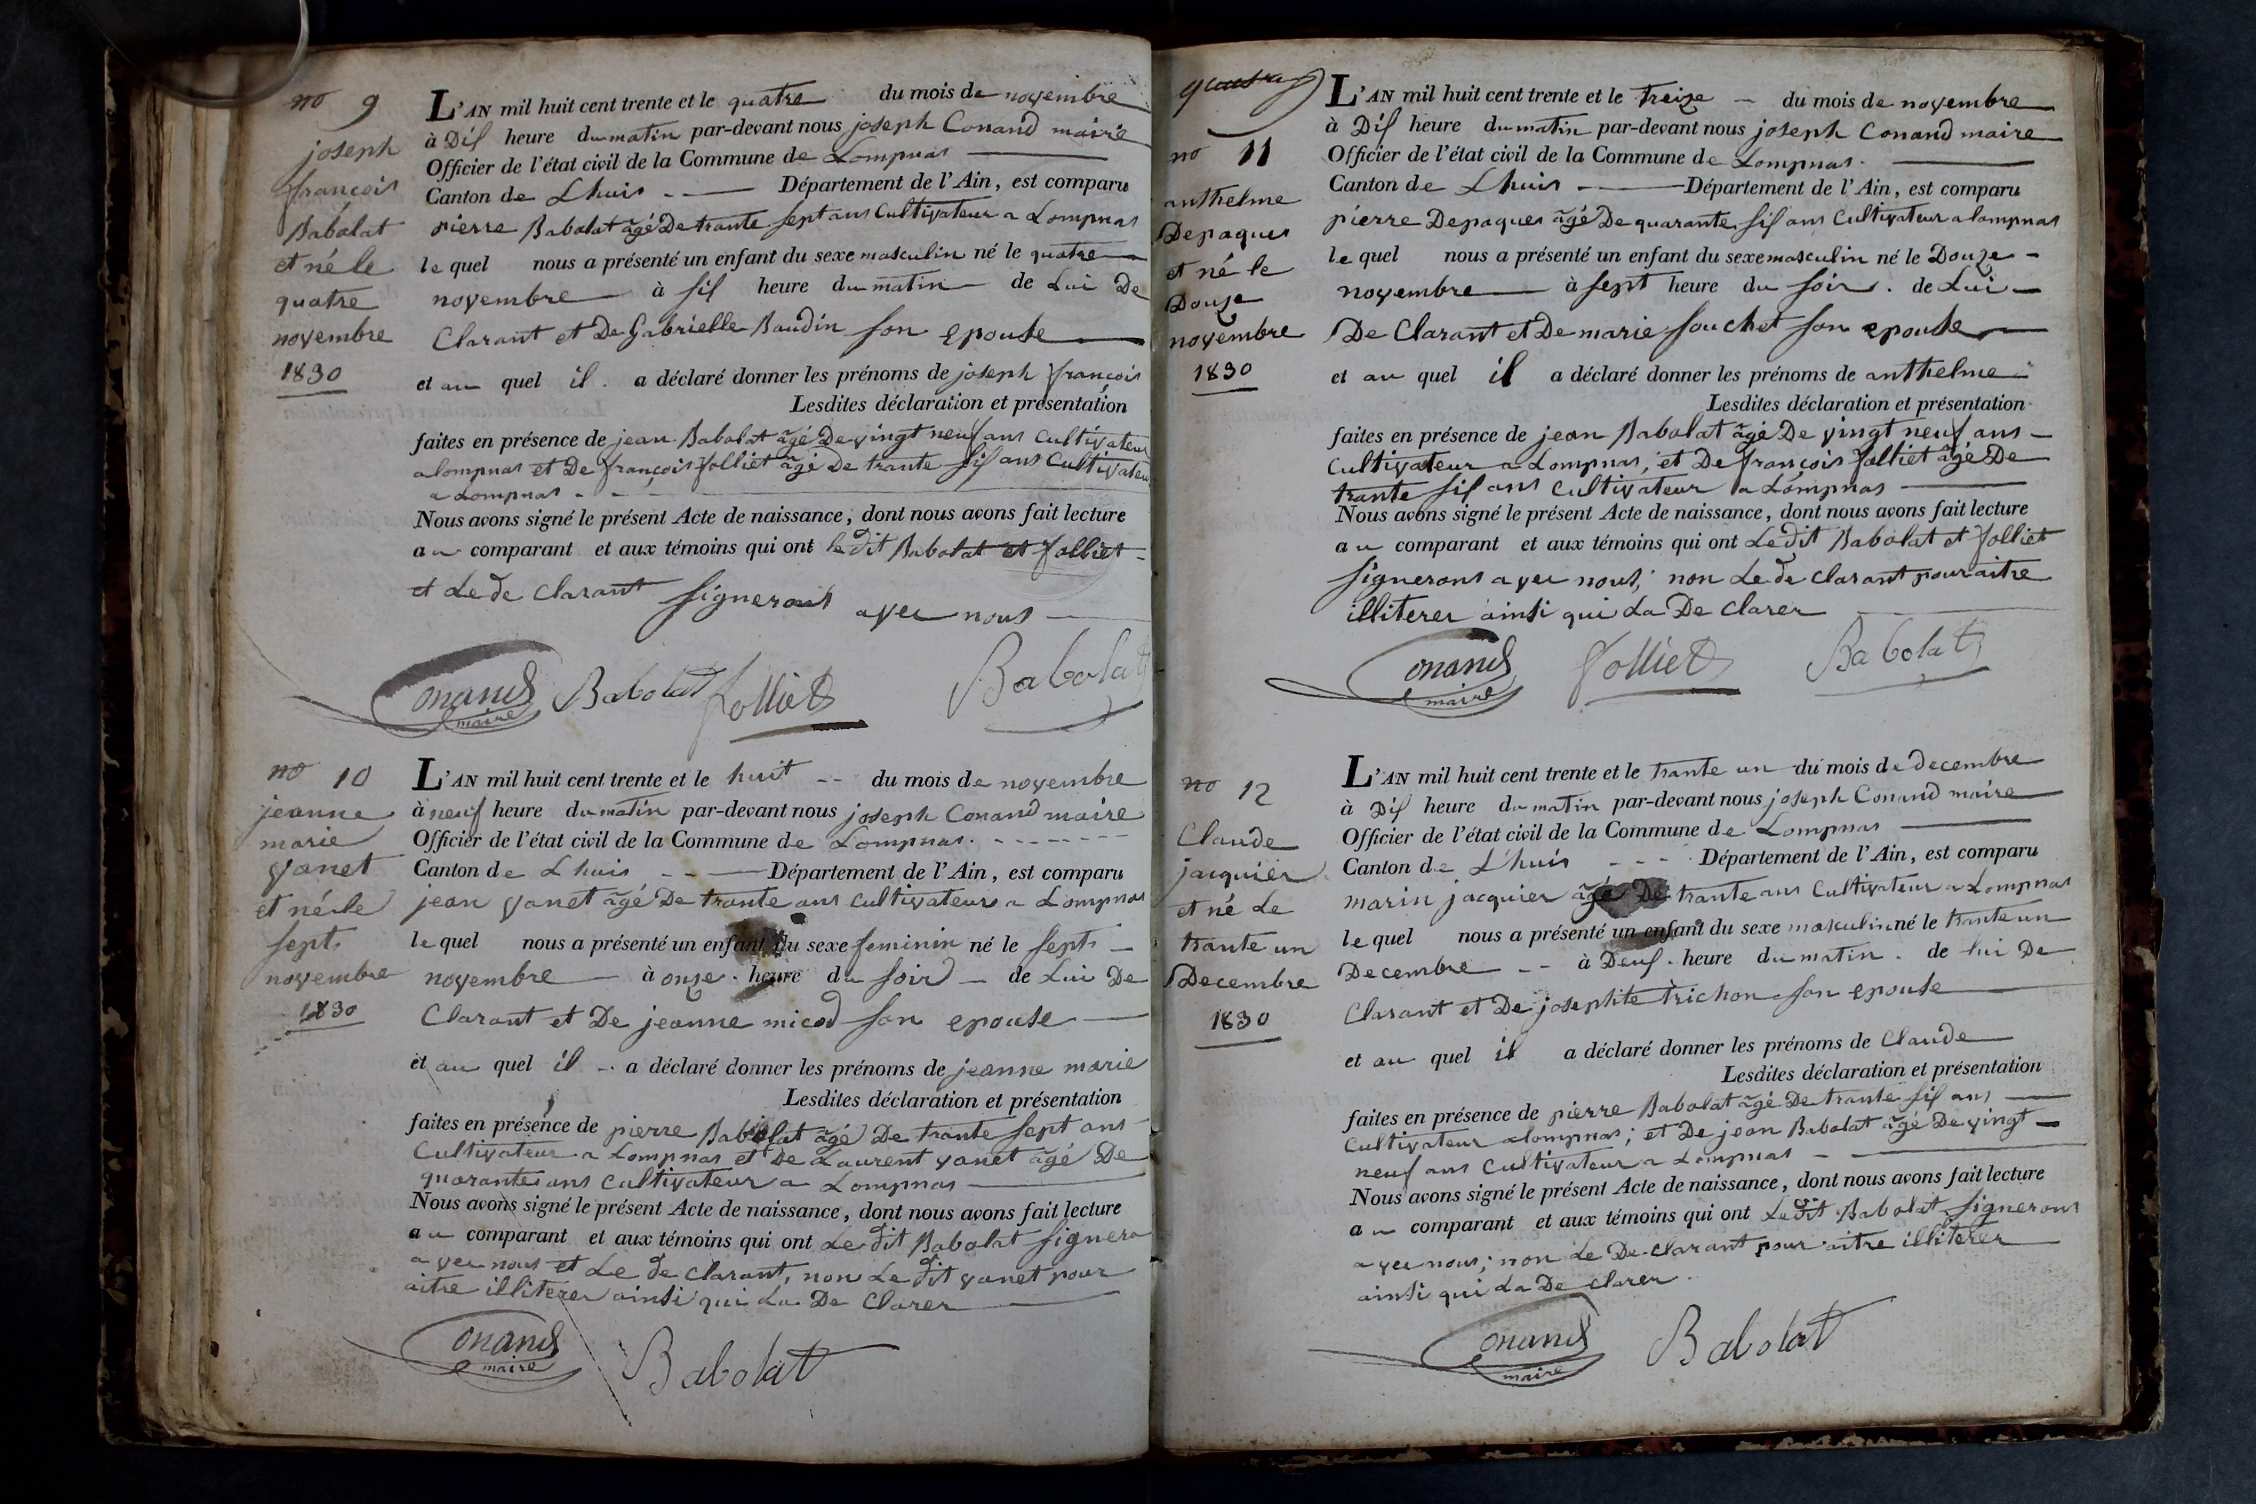 no 9
joseph
françois
Babolat
et né le
quatre
novembre
1830
L'AN mil huit cent trente et le quatre du mois de novembre
à Dis heure du matin par-devant nous joseph Conand mairie
Officier de l'état civil de la Commune de Lompnas
Canton de Lhuis Département de l'Ain, est comparu
pierre Babolat âgé De trante sept ans Cultivateur a Lompnas
le quel nous a présenté un enfant du sexe masculin né le quatre
novembre à sis heure du matin de Lui De
Clarant et De Gabrielle Baudin son epouse
et au quel il a déclaré donner les prénoms de joseph françois
Lesdites déclaration et présentation
faites en présence de jean Babolat âgé De vingt neuf ans Cultivateur
a lompnas et De françois folliet âgé De trante sis ans Cultivateur
a Lompnas
Nous avons signé le présent Acte de naissance, dont nous avons fait lecture
au comparant et aux témoins qui ont le dit Babolat et folliet
et Le de Clarant signerons avec nous
Conand maire Babolat folliet Babolat
no 10
jeanne
marie
yanet
et né le
sept
novembre
1830
L'AN mil huit cent trente et le huit du mois de novembre
à neuf heure du matin par-devant nous joseph Conand maire
Officier de l'état civil de la Commune de Lompnas
Canton de Lhuis Département de l'Ain, est comparu
jean yanet âgé De trante ans Cultivateur a Lompnas
le quel nous a présenté un enfant du sexe feminin né le sept
novembre à onze heure du soir de Lui De
Clarant et De jeanne micod son epouse
et au quel il a déclaré donner les prénoms de jeanne marie
Lesdites déclaration et présentation
faites en présence de pierre Babolat âgé De trante sept ans
Cultivateur a Lompnas et De Laurent yanet âgé De
quarante ans Cultivateur a Lompnas
Nous avons signé le présent Acte de naissance, dont nous avons fait lecture
au comparant et aux témoins qui ont Le dit Babolat signera
avec nous et Le de Clarant, non Le dit yanet pour
aitre illiterer ainsi qui La De Clarer
Conand maire Babolat
no 11
anthelme
Depaques
et né le
Douze
novembre
1830
L'AN mil huit cent trente et le treize du mois de novembre
à Dis heure du matin par-devant nous joseph Conand maire
Officier de l'état civil de la Commune de Lompnas
Canton de Lhuis Département de l'Ain, est comparu
pierre Depaques âgé De quarante sis ans Cultivateur a lompnas
le quel nous a présenté un enfant du sexe masculin né le Douze
novembre à sept heure du soir de Lui
De Clarant et De marie souchet son epouse
et au quel il a déclaré donner les prénoms de anthelme
Lesdites déclaration et présentation
faites en présence de jean Babolat âgé De vingt neuf ans
Cultivateur a Lompnas, et De françois folliet âgé De
trante sis ans Cultivateur a Lompnas
Nous avons signé le présent Acte de naissance, dont nous avons fait lecture
au comparant et aux témoins qui ont Le dit Babolat et folliet
signerons avec nous, non Le de Clarant pour aitre
illiterer ainsi qui La De Clarer
Conand maire folliet Babolat
no 12
Claude
jacquier
et né Le
trante un
Decembre
1830
L'AN mil huit cent trente et le trante un du mois de decembre
à Dis heure du matin par-devant nous joseph Conand maire
Officier de l'état civil de la Commune de Lompnas
Canton de Lhuis Département de l'Ain, est comparu
marin jacquier âgé De trante ans Cultivateur a Lompnas
le quel nous a présenté un enfant du sexe masculin né le trante un
Decembre à Deus heure du matin de lui De
Clarant et De josephte trichon son epouse
et au quel il a déclaré donner les prénoms de Claude
Lesdites déclaration et présentation
faites en présence de pierre Babolat âgé De trante sis ans
Cultivateur a lompnas; et De jean Babolat âgé De vingt
neuf ans Cultivateur a Lompnas
Nous avons signé le présent Acte de naissance, dont nous avons fait lecture
au comparant et aux témoins qui ont Le dit Babolat signerons
avec nous; non Le De Clarant pour aitre illiterer
ainsi qui La De Clarer
Conand maire Babolat